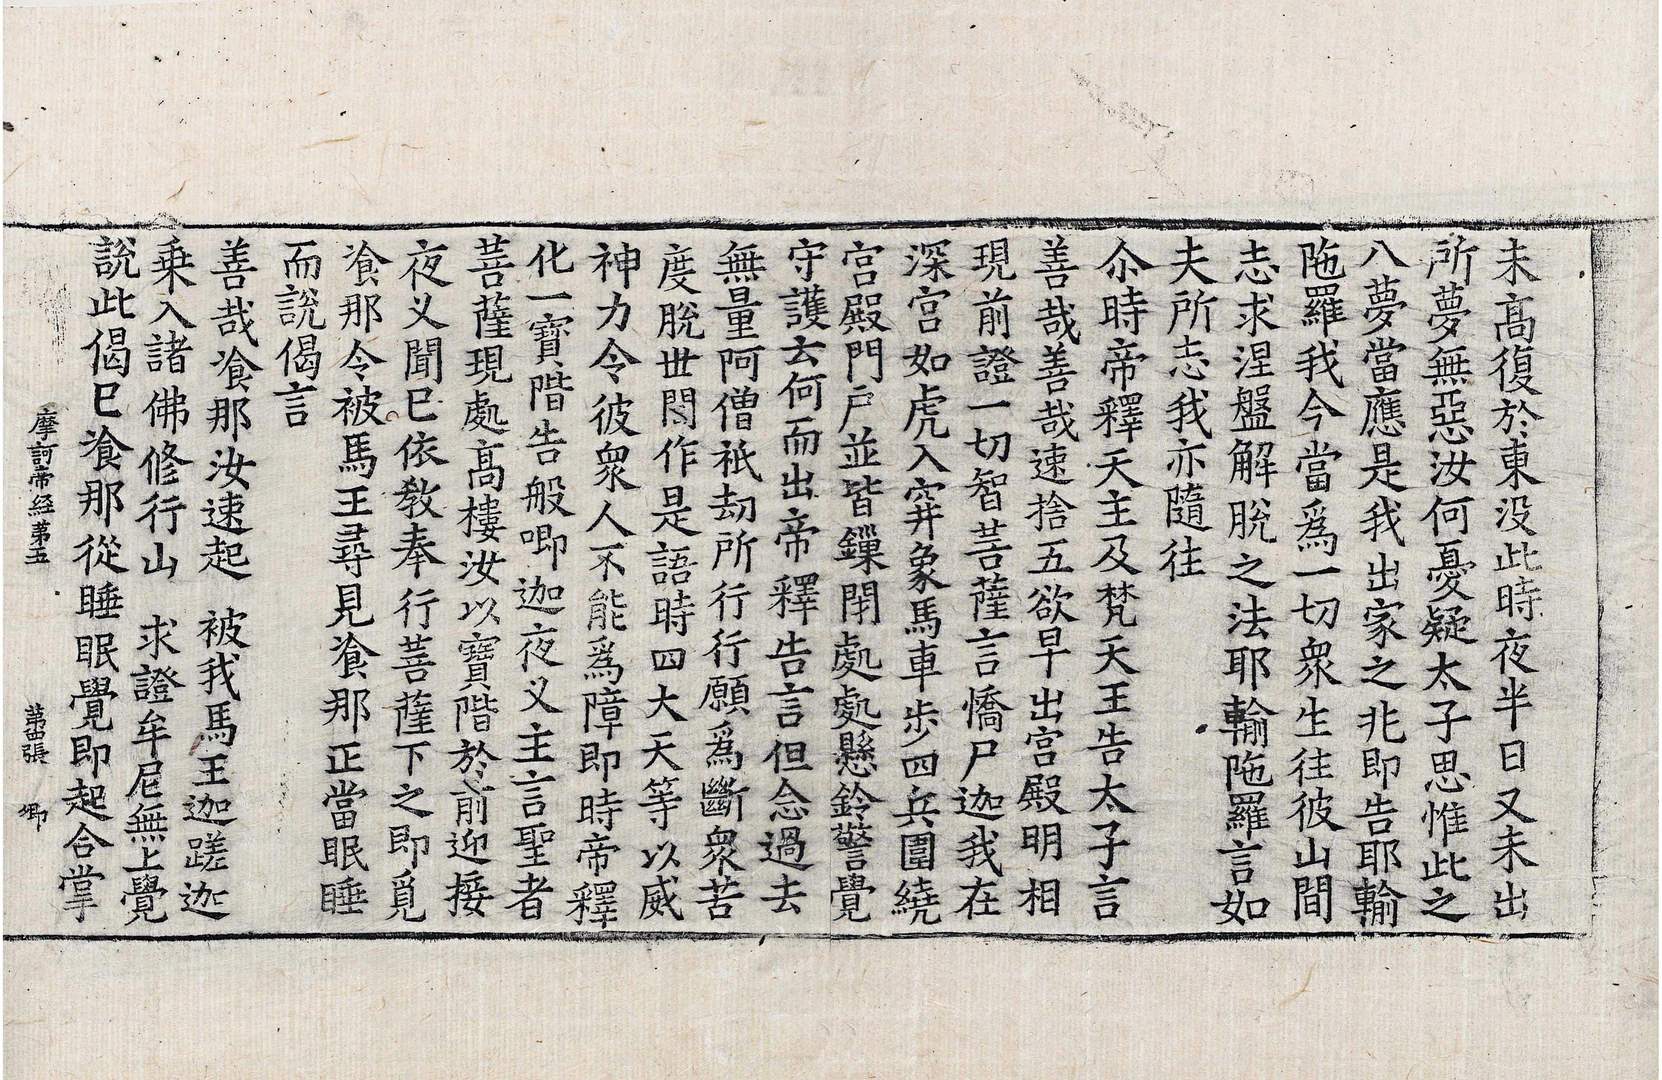 未高復於東没此時夜半日又未出
所夢無惡汝何憂疑太子思惟此之
八夢當應是我出家之兆即告耶輸
陁羅我今當爲一切衆生往彼山間
志求涅盤解脫之法耶輸陁羅言如
夫所志我亦隨往
尒時帝釋天主及梵天王告太子言
善哉善哉速捨五欲早出宮殿明相
現前證一切智菩薩言憍尸迦我在
深宮如虎入穽象馬車步四兵圍繞
宮殿門戶並皆鏁閇處處懸鈴警覺
守護云何而出帝釋告言但念過去
無量阿僧祇劫所行行願爲斷衆苦
度脫世間作是語時四大天等以威
神力令彼衆人不能爲障即時帝釋
化一寶階告般唧迦夜叉主言聖者
菩薩現處高樓汝以寶階於前迎接
夜叉聞已依教奉行菩薩下之即覓
飡那令被馬王尋見飡那正當眠睡
而說偈言
善哉飡那汝速起　被我馬王迦蹉迦
乗入諸佛修行山　求證牟尼無上覺
說此偈已飡那從睡眠覺即起合掌
摩訶帝経苐五　苐㽕張　卿